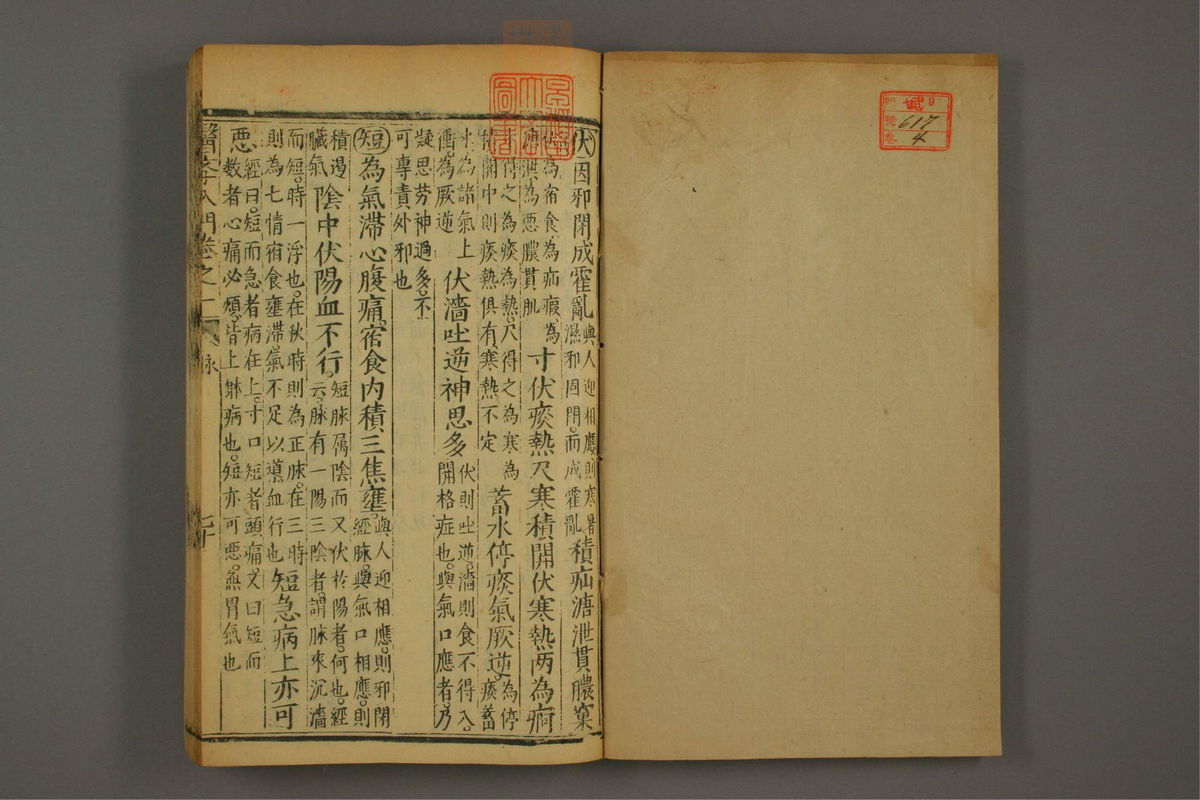 伏因邪閉成霍亂與人迎相應則寒暑濕邪固閉而成霍亂積疝溏泄貫膿窠
為宿食為疝瘕為為惡膿貫肌寸伏痰熱尺寒積關伏寒熱兩為痾
得之為痰為熱尺得之為寒為關中則痰熱俱有寒熱不定蓄水停痰氣厥逆為停痰蓄
水為諸氣上衝為厥逆伏濇吐逆神思多伏則吐逆濇則食不得入
關格症也與氣口應者乃
疑思勞神過多不可專責外邪也
短為氣滯心腹痛宿食內積三焦壅與人迎相應則邪閉經脉與氣口相應則
積遏臟氣陰中伏陽血不行短脉属陰而又伏於陽者何也經云脉有一陽三陰者謂脉來沉濇
而短時一浮也在秋時則為正脉在三時則為七情宿食壅滯氣不足以導血行也短急病上亦可
惡經曰短而急者病在上寸口短者頭痛又曰短而數者心痛必煩皆上躰病也短亦可惡無胃氣也
醫學入門卷之一
脉
七十
圖書
貳
617
4
號
卷